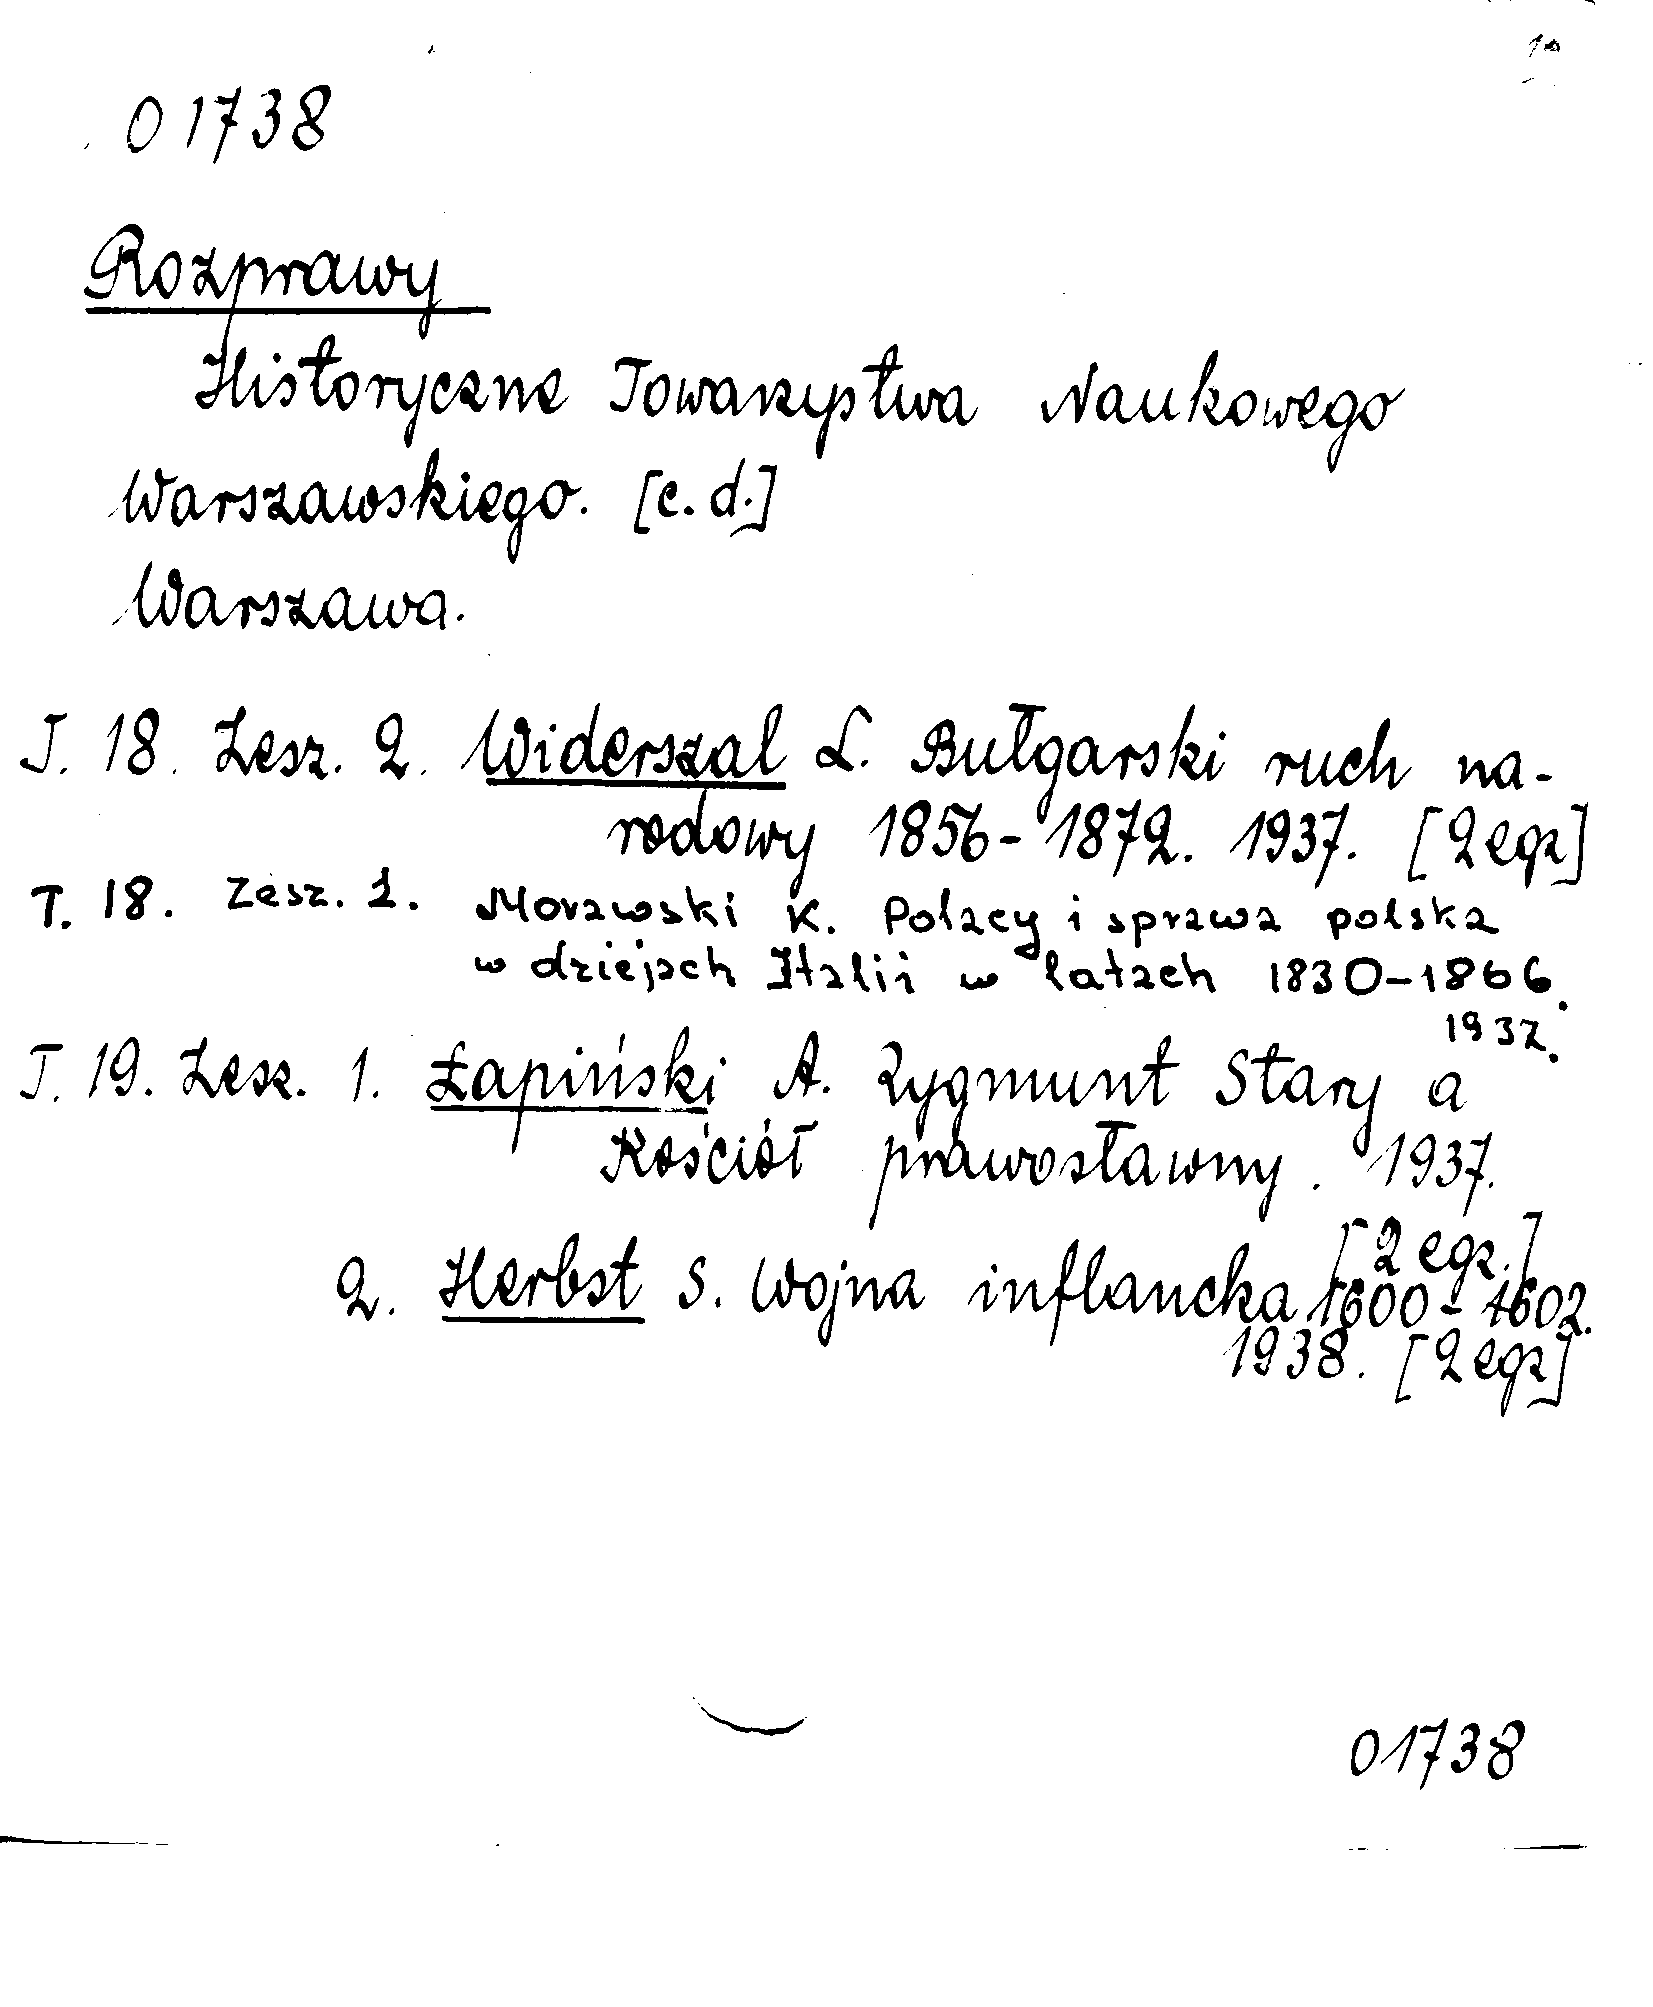 01738
Rozprawy
Historyczne Towarzystwa Naukowego
Warszawskiego. [c.d.]
Warszawa.
T. 18. Zesz. 2. Widerszal L. Bułgarski ruch na-
rodowy 1856-1872. 1937. [2 egz]
T. 18. Zesz. 1. Morawski K. Polacy i sprawa polska
w dziejach Italii w latach 1830-1866.
1937.
T. 19. Zesz. 1. Łapiński A. Zygmunt Stary a
Kościół prawosławny. 1937.
[2 egz.]
2. Herbst S. Wojna inflancka 1600-1602.
1938. [2 egz]
01738